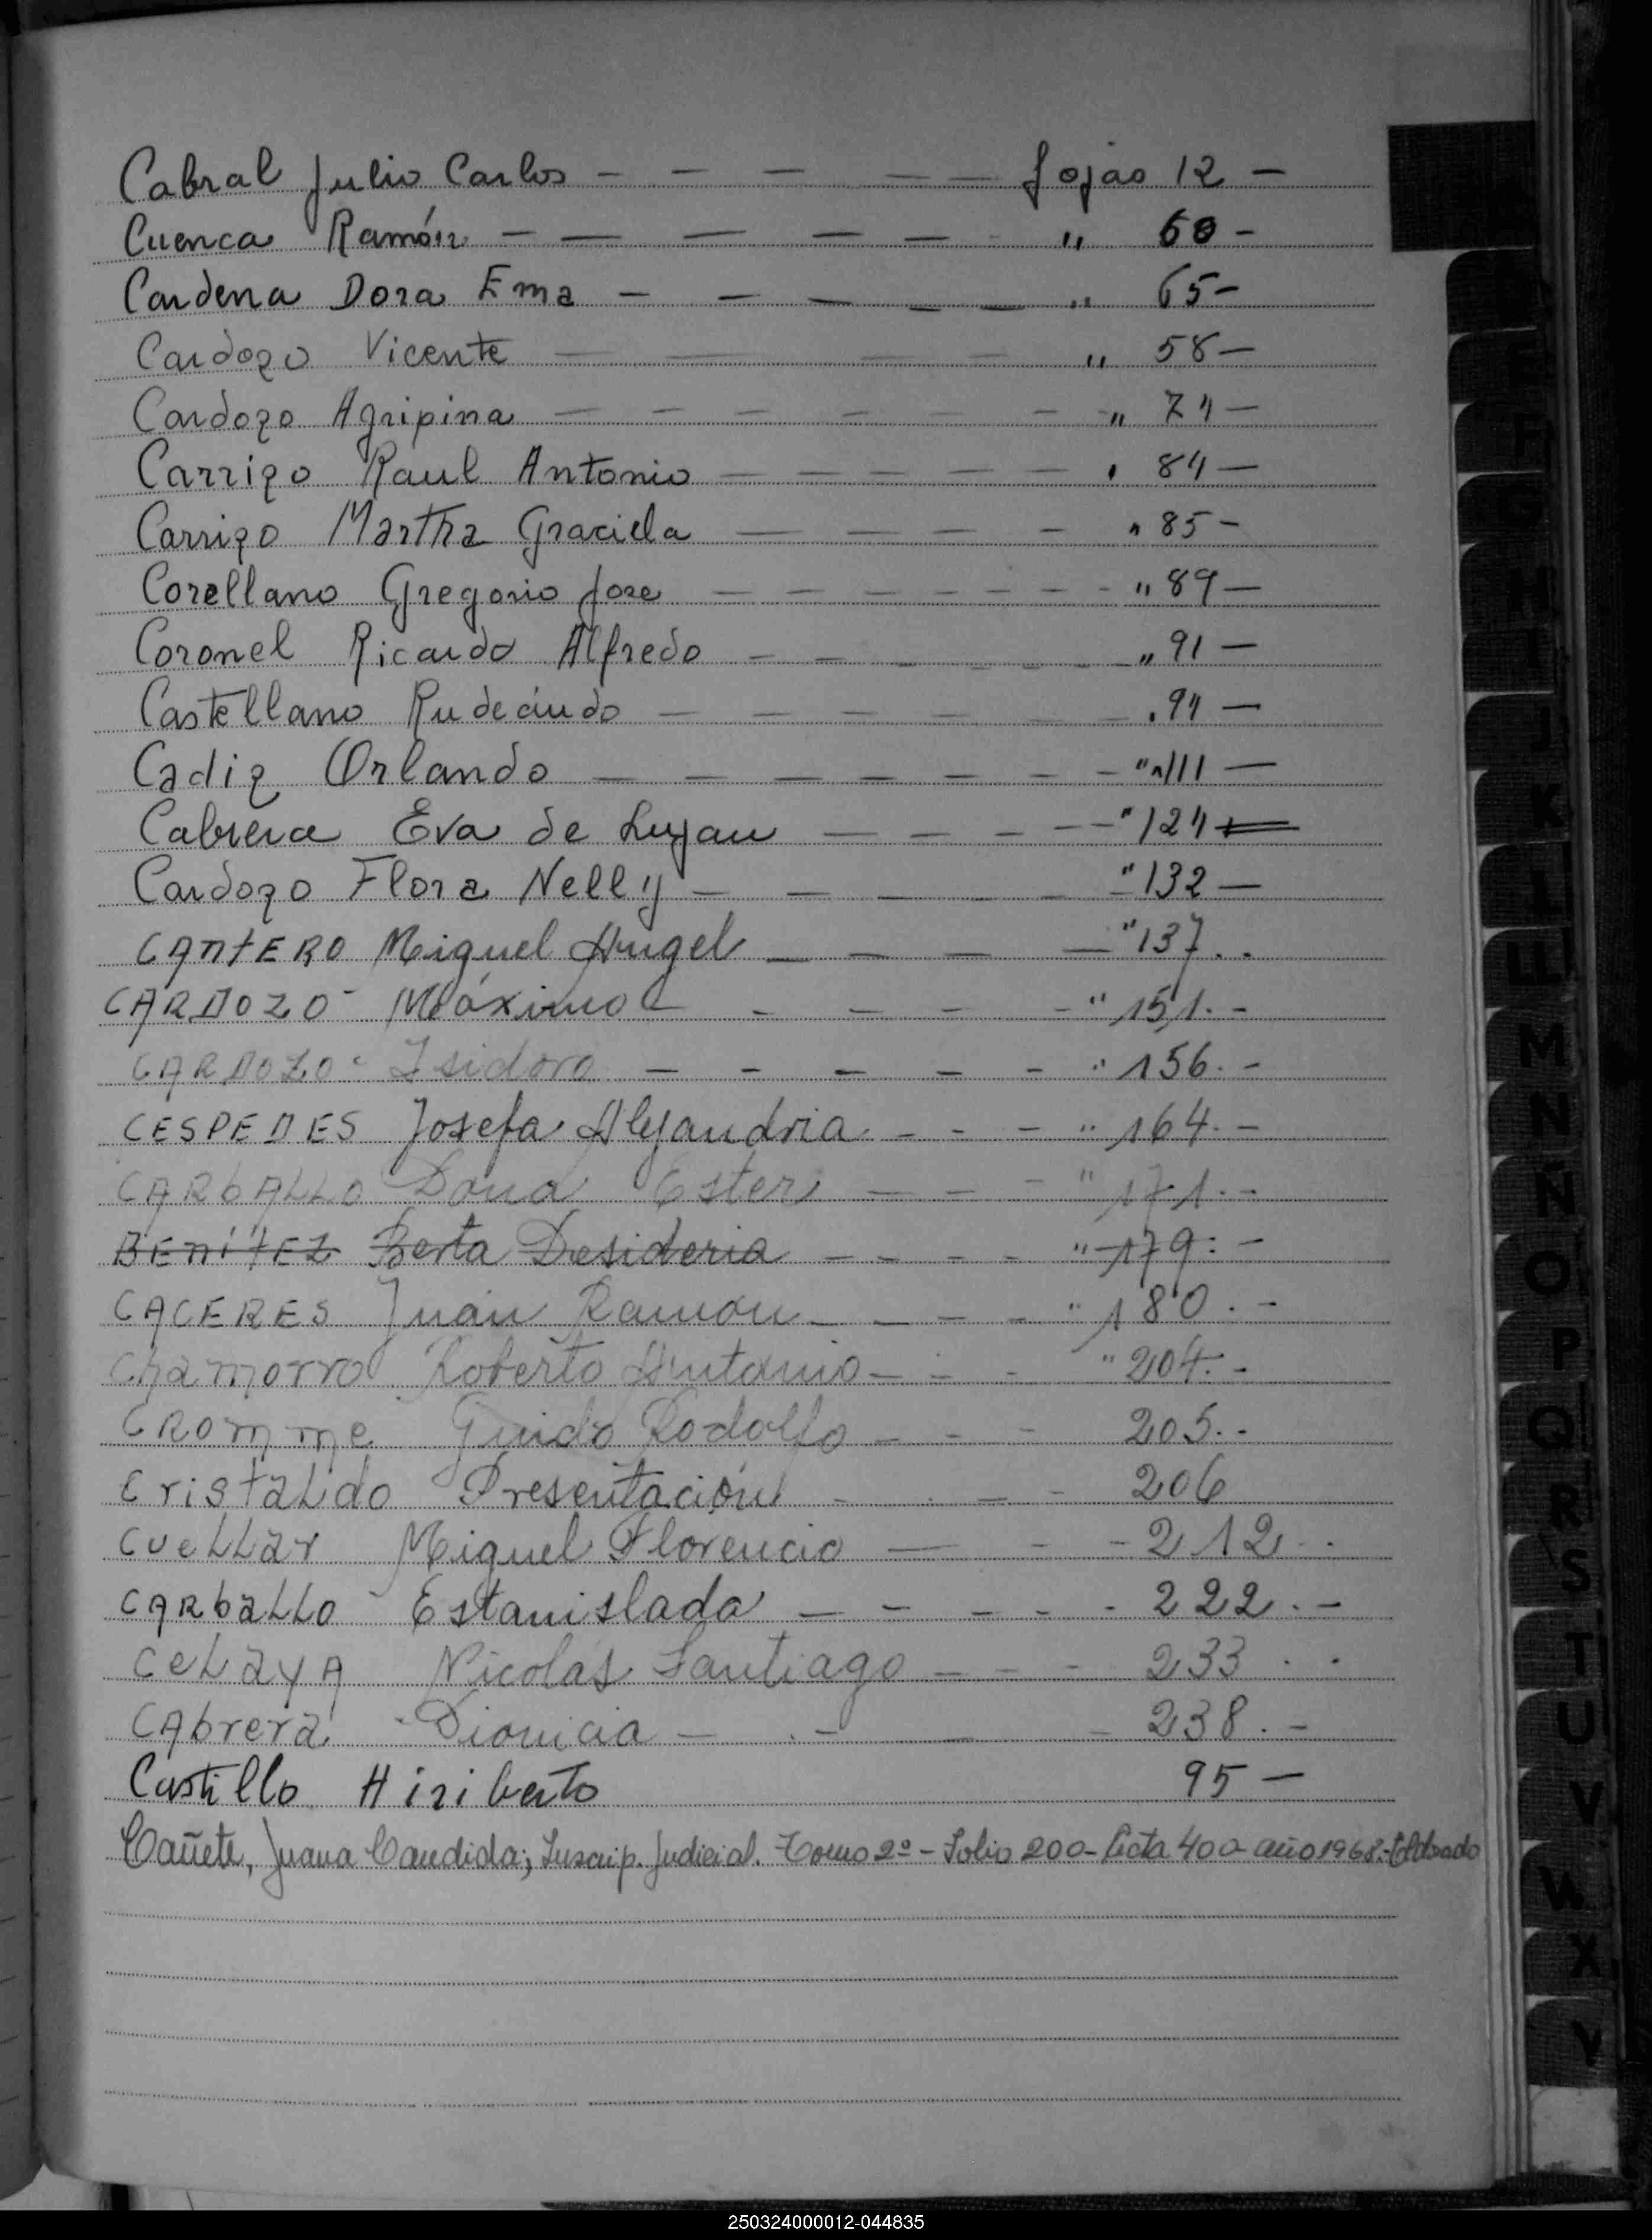 Cabral Julio Carlos - - - - - fojas 12 -
Cuenca Ramón - - - - - " 60 -
Cardena Dora Ema - - - - - " 65 -
Cardozo Vicente - - - - " 58 -
Cardozo Agripina - - - - - - " 74 -
Carrizo Raul Antonio - - - - - " 84 -
Carrizo Martha Graciela - - - - " 85 -
Corellano Gregorio Jose - - - - - - - " 89 -
Coronel Ricardo Alfredo - - - - - - " 91 -
Castellano Rudecindo - - - - - " 94 -
Cadiz Orlando - - - - - - - " 111 -
Cabrera Eva de Lujan - - - - - " 124 -
Cardozo Flora Nelly - - - - - " 132 -
CANTERO Miguel Angel - - - - " 137 . .
CARDOZO - Máximo - - - - - " 151. -
CARDOZO - Isidoro - - - - - " 156. -
CESPEDES Josefa Alejandria - - - " 164. -
CARbALLO Dona Ester - - - " 171. -
BENITEZ Berta Desideria - - - - " 179. -
CACERES Juan Ramon - - - - " 180. -
Chamorro Roberto Antonio - - - " 204. -
CROmme Guido Rodolfo - - - 205. -
CristaLdo Presentación - - - - 206
CueLLar Miguel Florencio - - - 212 . .
CARbaLLo - Estanislada - - - - - 222. -
CeLayA Nicolás Santiago - - - 233 . .
CAbrera - Dionicia - - - - 238. -
Castillo Hiriberto 95 -
Cañete, Juana Candida; Inscrip. Judicial. Tomo 2º - Folio 200 - Acta 400 - año 1968. - Eldorado
250324000012-044835
K
M
N
Ñ
O
P
Q
R
S
T
U
V
W
X
Y